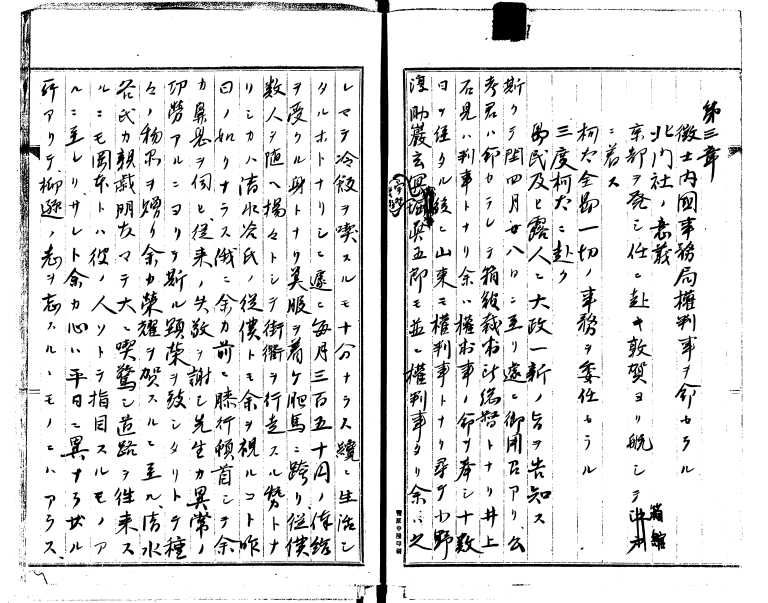 第三章
徴士内國事務局權判事ヲ命セラル
北門社ノ意義
京都ヲ発シ任ニ赴キ敦賀ヨリ航シテ
箱館
ニ着ス
柯太全島一切ノ事務ヲ委任セラル
三度柯太ニ赴ク
島民及ヒ露人ニ大政一新ノ旨ヲ告知ス
斯クテ閏四月廿八日ニ至リ遽ニ御用召アリ公
考君ハ命セラレテ箱館裁判所総督トナリ井上
石見ハ判事トナリ余ハ權判事ノ命ヲ奉シ十数
日ヲ経タル後ニ山東モ權判事トナリ尋デ小野
淳助巖玄溟堀真五郎モ並ニ權判事タリ余ハ之
レマテ冷飯ヲ喫スルモ十分ナラス纔ニ生活シ
タルホトナリシニ遽ニ毎月三百五十円ノ俸給
ヲ受クル身トナリ美服ヲ着ケ肥馬ニ跨リ従僕
数人ヲ随ヘ揚々トシテ街衢ヲ行走スル勢トナ
リシカハ清水谷氏ノ従僕トモ余ヲ視ルコト昨
日ノ如クナラス俄ニ余カ前ニ膝行頓首シテ余
カ鼻息ヲ伺ヒ従来ノ失敬ヲ謝シ先生カ異常ノ
功労アルニヨリテ斯ル顕栄ヲ致シタリトテ種
々ノ物品ヲ贈リ余カ栄耀ヲ賀スルニ至ル清水
谷氏カ親戚朋友マテ大ニ喫驚シ道路ヲ往来ス
ルニモ岡本トハ彼ノ人ソトテ指目スルモノア
ルニ至レリサレト余カ心ハ平日ニ異ナラザル
所アリテ柳遜ノ志ヲ忘スルヽモノニハアラス